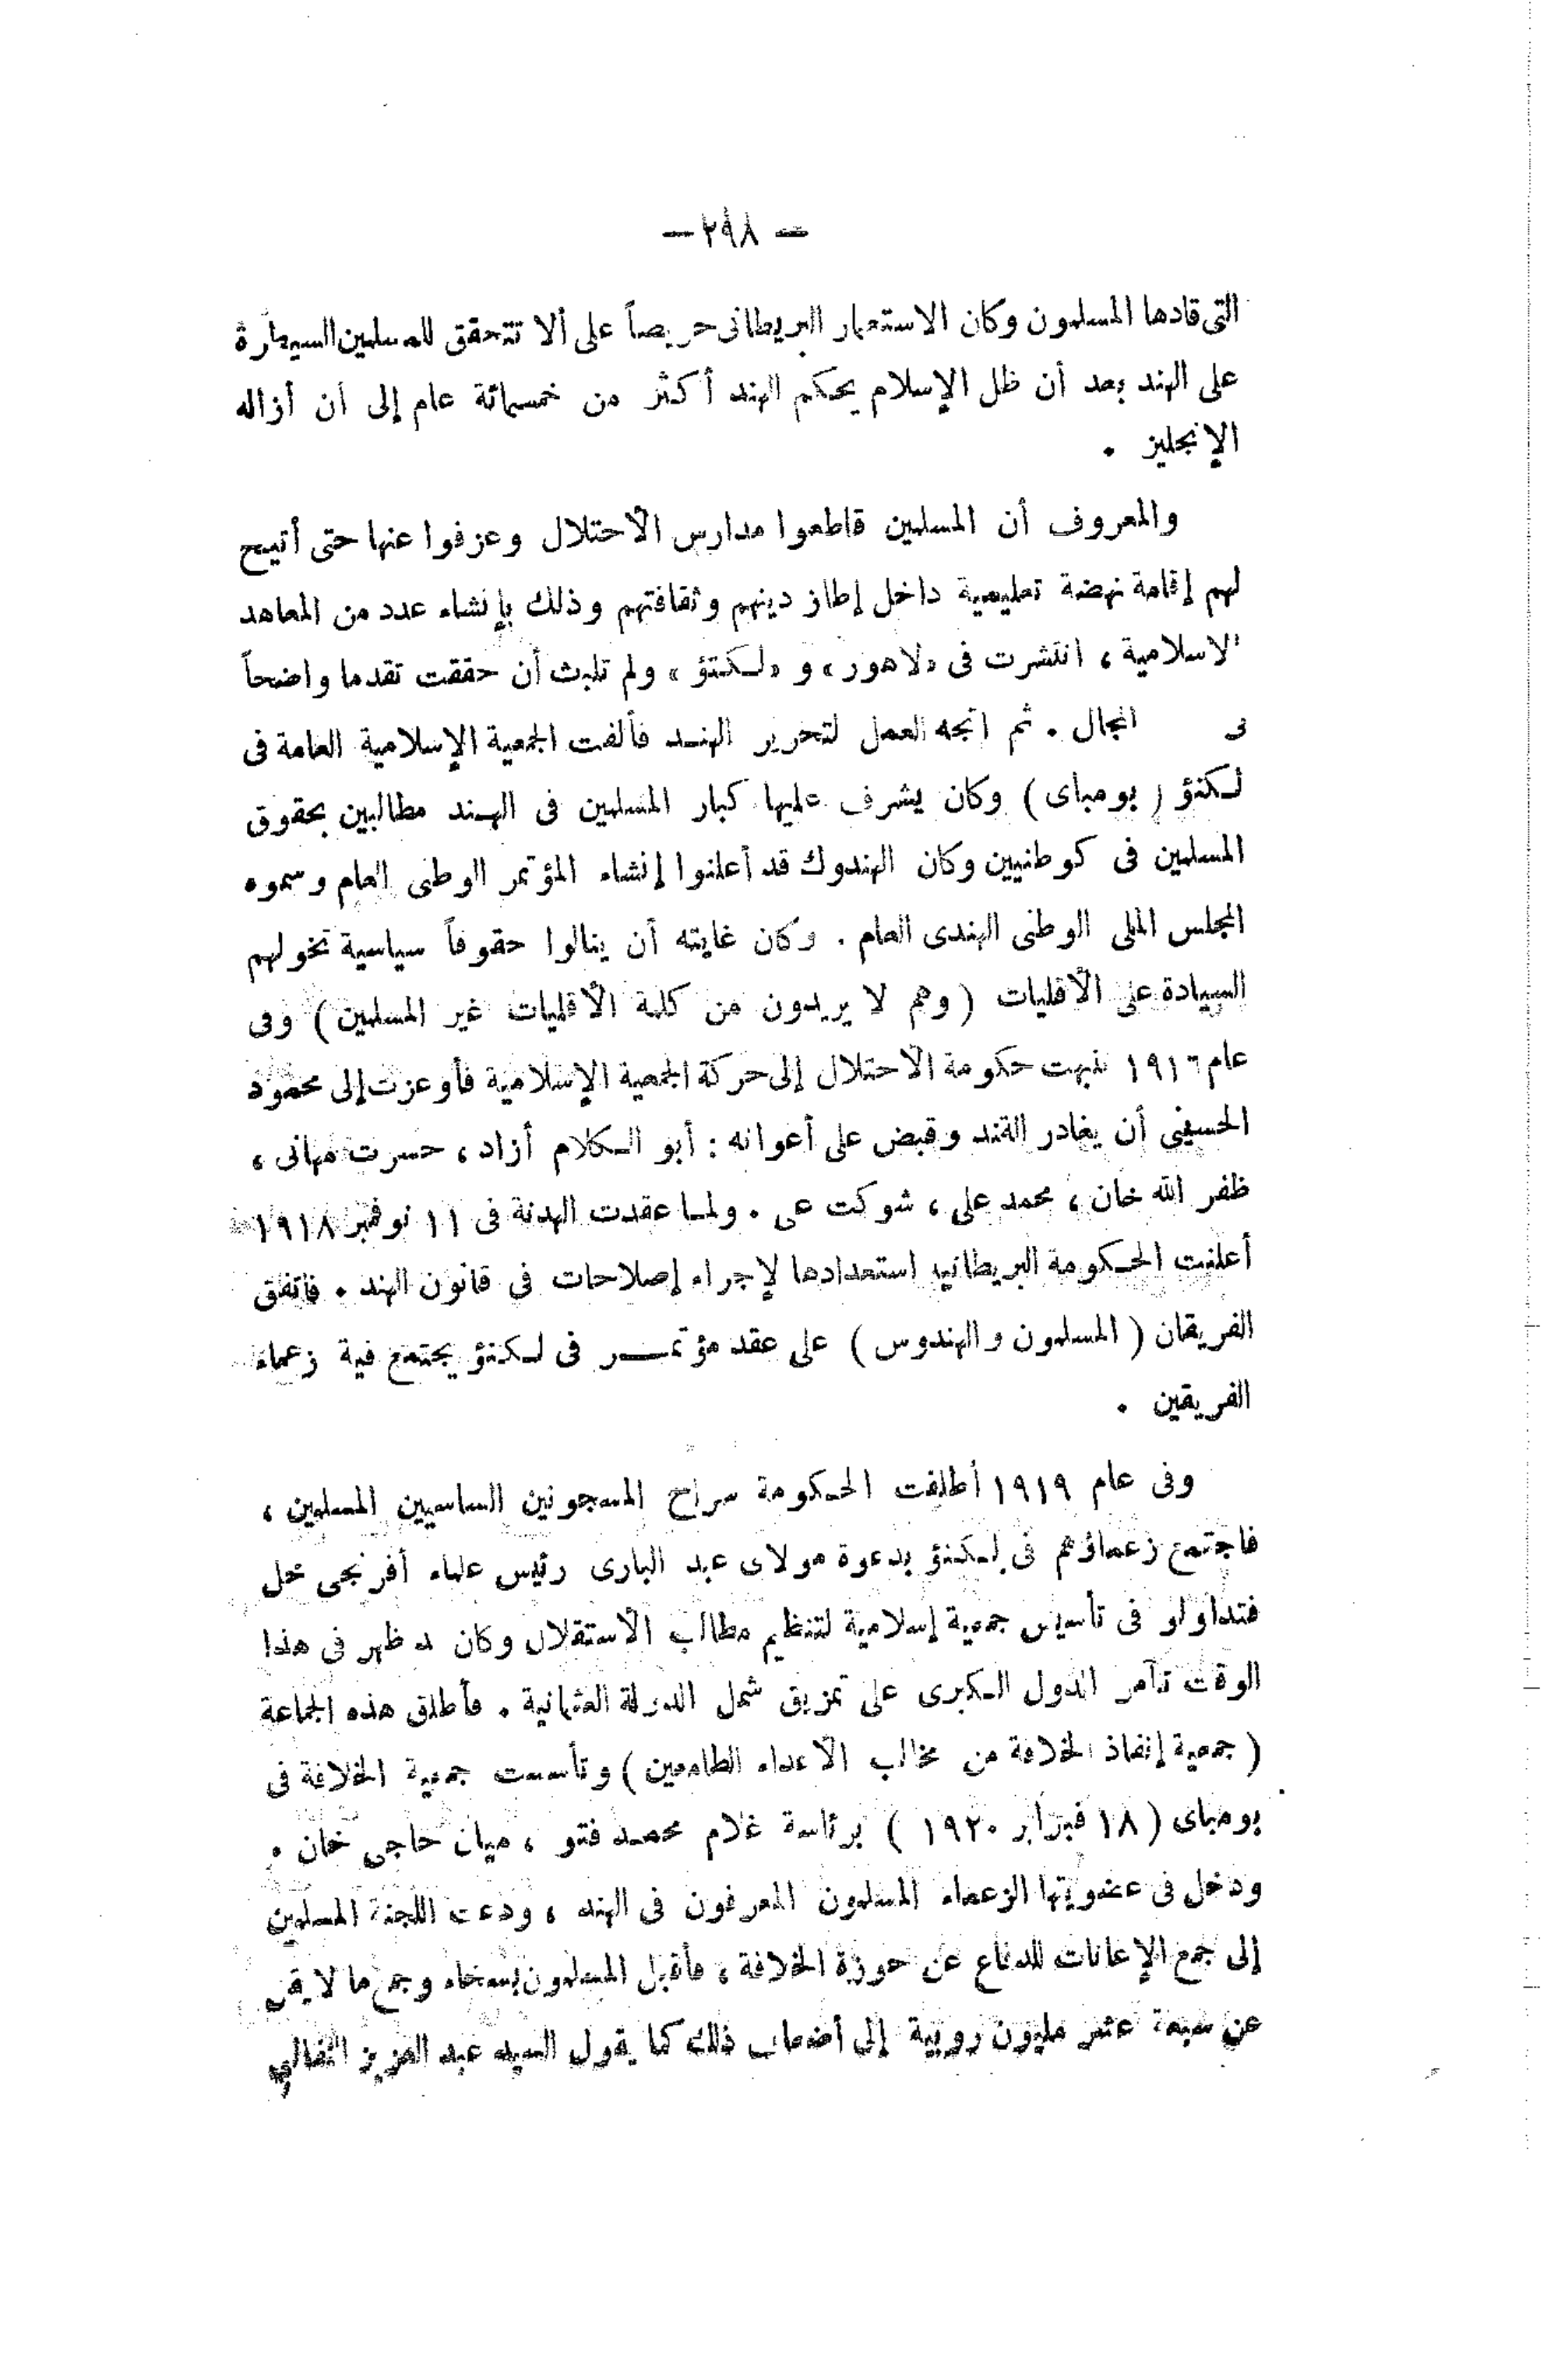 — ٢٩٨ —
التى قادها المسلمون وكان الاستعمار البريطانى حريصاً على ألا تتحقق للمسلمين السيطرة
على الهند بعد أن ظل الإسلام يحكم الهند أكثر من خمسمائة عام إلى أن أزاله
الإنجليز .
والمعروف أن المسلمين قاطعوا مدارس الاحتلال وعزفوا عنها حتى أتيح
لهم إقامة نهضة تعليمية داخل إطار دينهم وثقافتهم وذلك بإنشاء عدد من المعاهد
الاسلامية ، انتشرت فى «لاهور» و «لكنؤ» ولم تلبث أن حققت تقدما واضحاً
المجال . ثم اتجه العمل لتحرير الهند فألفت الجمعية الإسلامية العامة فى
لكنؤ ( بومباى ) وكان يشرف عليها كبار المسلمين فى الهند مطالبين بحقوق
المسلمين فى كوطنيين وكان الهندوك قد أعلنوا إنشاء المؤتمر الوطنى العام وسموه
المجلس الملى الوطنى الهندى العام . وكان غايته أن ينالوا حقوقاً سياسية تخولهم
السيادة على الأقليات ( وهم لا يريدون من كلمة الأقليات غير المسلمين ) وفى
عام ١٩١٦ تنبهت حكومة الاحتلال إلى حركة الجمعية الإسلامية فأوعزت إلى محمود
الحسينى أن يغادر الهند وقبض على أعوانه : أبو الكلام أزاد ، حسرت مهانى ،
ظفر الله خان ، محمد على ، شوكت عى . ولما عقدت الهدنة فى ١١ نوفمبر ١٩١٨
أعلنت الحكومة البريطانية استعدادها لإجراء إصلاحات فى قانون الهند . فاتفق
الفريقان ( المسلمون والهندوس ) على عقد مؤتمر فى لكنؤ يجتمع فية زعماء
الفريقين .
وفى عام ١٩١٩ أطلقت الحكومة سراح المسجونين الساسيين المسلمين ،
فاجتمع زعماؤهم فى لكنؤ بدعوة مولاى عبد البارى رئيس علماء أفرنجى محل
فتداولو فى تأسيس جمعية إسلامية لتنظيم مطالب الاستقلال وكان ظهر فى هذا
الوقت تآمر الدول الكبرى على تمزيق شمل الدولة العثمانية . فأطلق هذه الجماعة
( جمعية إنقاذ الخلافة من مخالب الاعداء الطامعين ) وتأسست جمعية الخلافة فى
بومباى ( ١٨ فبراير ١٩٢٠ ) برئاسة غلام محمد فتو ، ميان حاجى خان .
ودخل فى عضويتها الزعماء المسلمون المعرفون فى الهند ، ودعت اللجنة المسلمين
إلى جمع الإعانات للدفاع عن حوزة الخلافة ، فأقبل المسلمون بسخاء وجمع ما لا يقل
عن سبعة عشر مليون روبية إلى أضعاب ذلك كما يقول السيد عبد العزيز الثعالبي